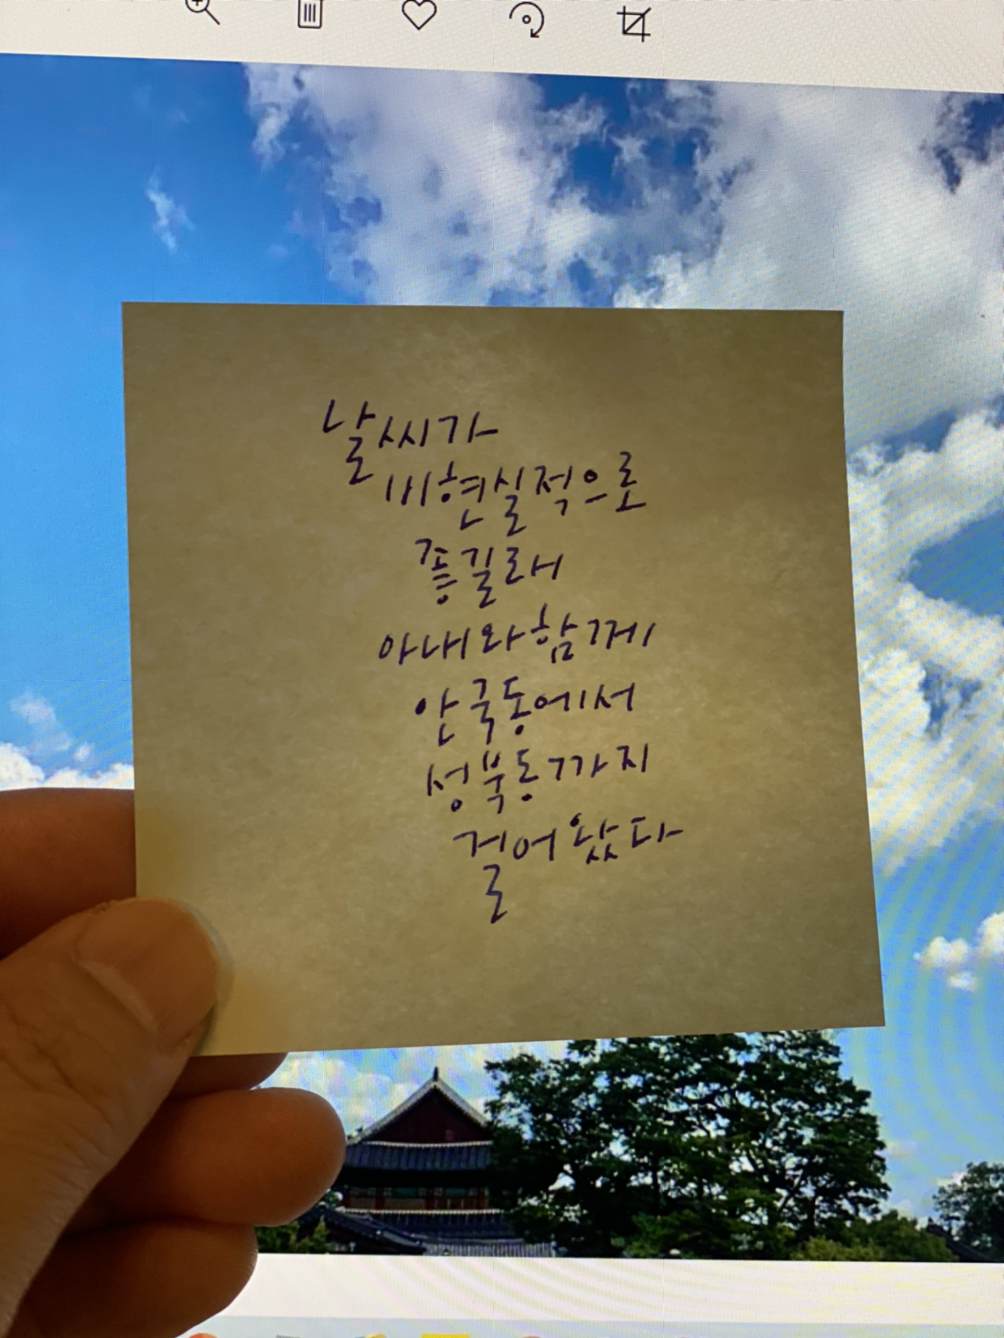 날씨가
비현실적으로
좋길래
아내와 함께
안국동에서
성북동까지
걸어왔다